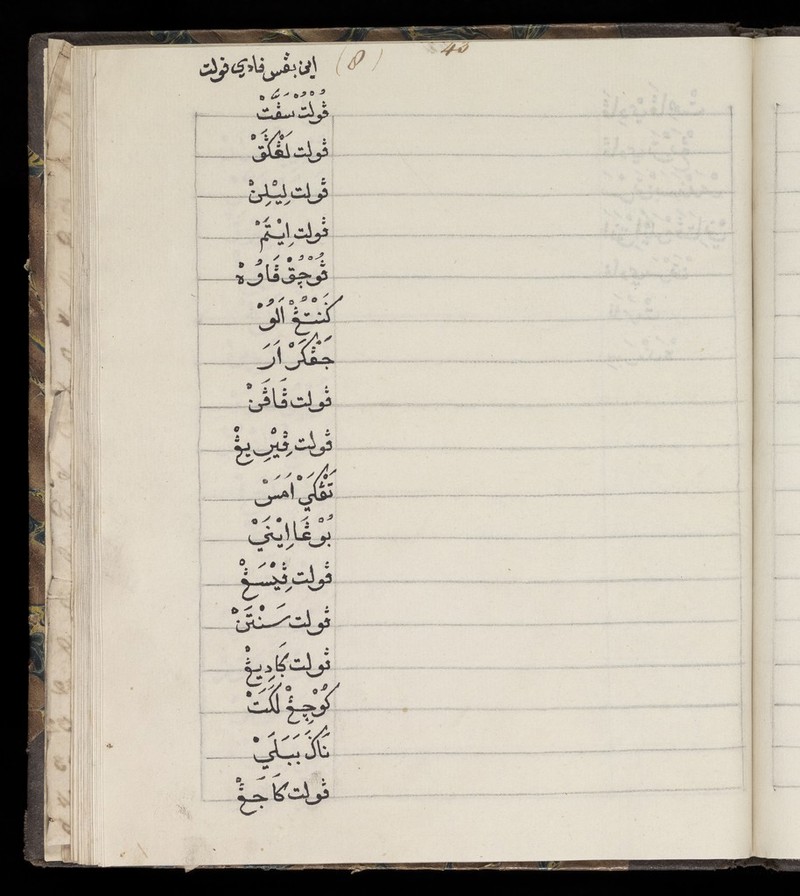 (8)
اين بڠس ڤادي ڤولت
ڤُوْلُتْ سِڤَتْ
ڤولت لَڠْكَڤْ
ڤولت لِيْلِنْ
ڤولت اِيْتَمْ
ڤُوْچُقْ ڤَاوُهْ
كَنْتُڠْ اَلُوْ
جَڠْكَرْ اَرَ
ڤولت ڤَاڤَنْ
ڤولت ڤِيْرِيڠْ
تَڠْكَيْ اَمَسْ
بُوْڠَا اِيْنَيْ
ڤولت ڤِيْسَڠْ
ڤولت سَنْتَنْ
ڤولت كَادِيڠْ
كُوْچِڠْ لَكَتْ
نَاكَ بَبَلَيْ
ڤولت كَاجَڠْ